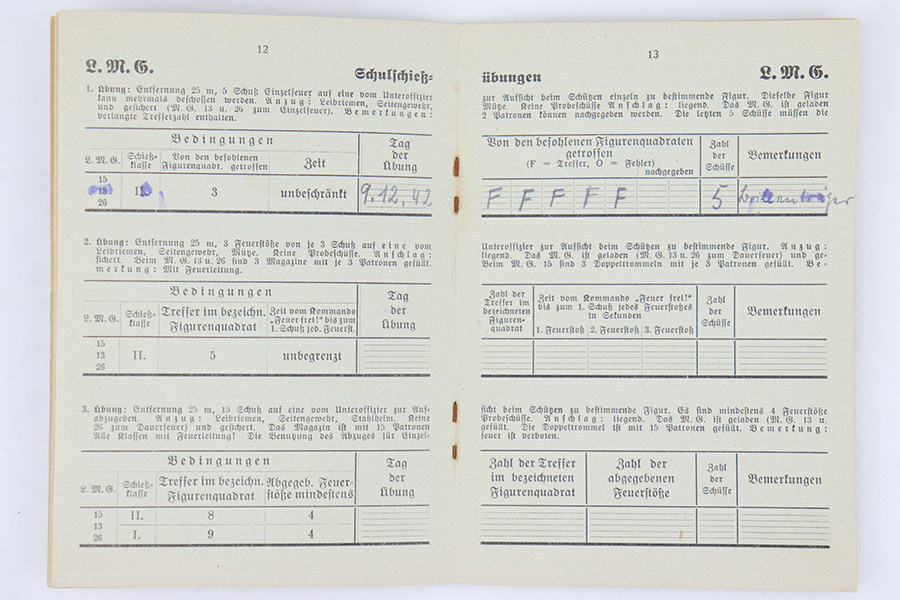 12
L. M. G. Schulschieß-
1. Übung: Entfernung 25 m, 5 Schuß Einzelfeuer auf eine vom Unteroffizier
kann mehrmals beschossen werden. Anzug: Leibriemen, Seitengewehr,
und gesichert (M. G. 13 u. 26 zum Einzelfeuer). Bemerkungen:
verlangte Trefferzahl enthalten.
Bedingungen
Tag der Übung
L. M. G. Schieß-klasse Von den befohlenen Figurenquadr. getroffen Zeit
15
13 II. 3 unbeschränkt 9.12.42
26
2. Übung: Entfernung 25 m, 3 Feuerstöße von je 3 Schuß auf eine vom
Leibriemen, Seitengewehr, Mütze. Keine Probeschüsse. Anschlag:
sichert. Beim M. G. 13 u. 26 sind 3 Magazine mit je 3 Patronen gefüllt.
merkung: Mit Feuerleitung.
Bedingungen
Tag der Übung
L. M. G. Schieß-klasse Treffer im bezeichn. Figurenquadrat Zeit vom Kommando „Feuer frei!“ bis zum 1. Schuß jed. Feuerst.
15
13 II. 5 unbegrenzt
26
3. Übung: Entfernung 25 m, 15 Schuß auf eine vom Unteroffizier zur Auf-
abzugeben. Anzug: Leibriemen, Seitengewehr, Stahlhelm. Keine
26 zum Dauerfeuer) und gesichert. Das Magazin ist mit 15 Patronen
Alle Klassen mit Feuerleitung! Die Benutzung des Abzuges für Einzel-
Bedingungen
Tag der Übung
L. M. G. Schieß-klasse Treffer im bezeichn. Figurenquadrat Abgegeb. Feuer-stöße mindestens
15 II. 8 4
13
26 I. 9 4
13
übungen L. M. G.
zur Aufsicht beim Schützen einzeln zu bestimmende Figur. Dieselbe Figur
Mütze. Keine Probeschüsse Anschlag: liegend. Das M. G. ist geladen
2 Patronen können nachgegeben werden. Die letzten 5 Schüsse müssen die
Von den befohlenen Figurenquadraten
getroffen
(F = Treffer, O = Fehler)
nachgegeben
Zahl der Schüsse
Bemerkungen
F F F F F 5
Unteroffizier zur Aufsicht beim Schützen zu bestimmende Figur. Anzug:
liegend. Das M. G. ist geladen (M. G. 13 u. 26 zum Dauerfeuer) und ge-
Beim M. G. 15 sind 3 Doppeltrommeln mit je 3 Patronen gefüllt. Be-
Zahl der Treffer im bezeichneten Figuren-quadrat
Zeit vom Kommando „Feuer frei!“
bis zum 1. Schuß jedes Feuerstoßes
in Sekunden
1. Feuerstoß 2. Feuerstoß 3. Feuerstoß
Zahl der Schüsse
Bemerkungen
sicht beim Schützen zu bestimmende Figur. Es sind mindestens 4 Feuerstöße
Probeschüsse. Anschlag: liegend. Das M. G. ist geladen (M. G. 13 u.
gefüllt. Die Doppeltrommel ist mit 15 Patronen gefüllt. Bemerkung:
feuer ist verboten.
Zahl der Treffer im bezeichneten Figurenquadrat
Zahl der abgegebenen Feuerstöße
Zahl der Schüsse
Bemerkungen